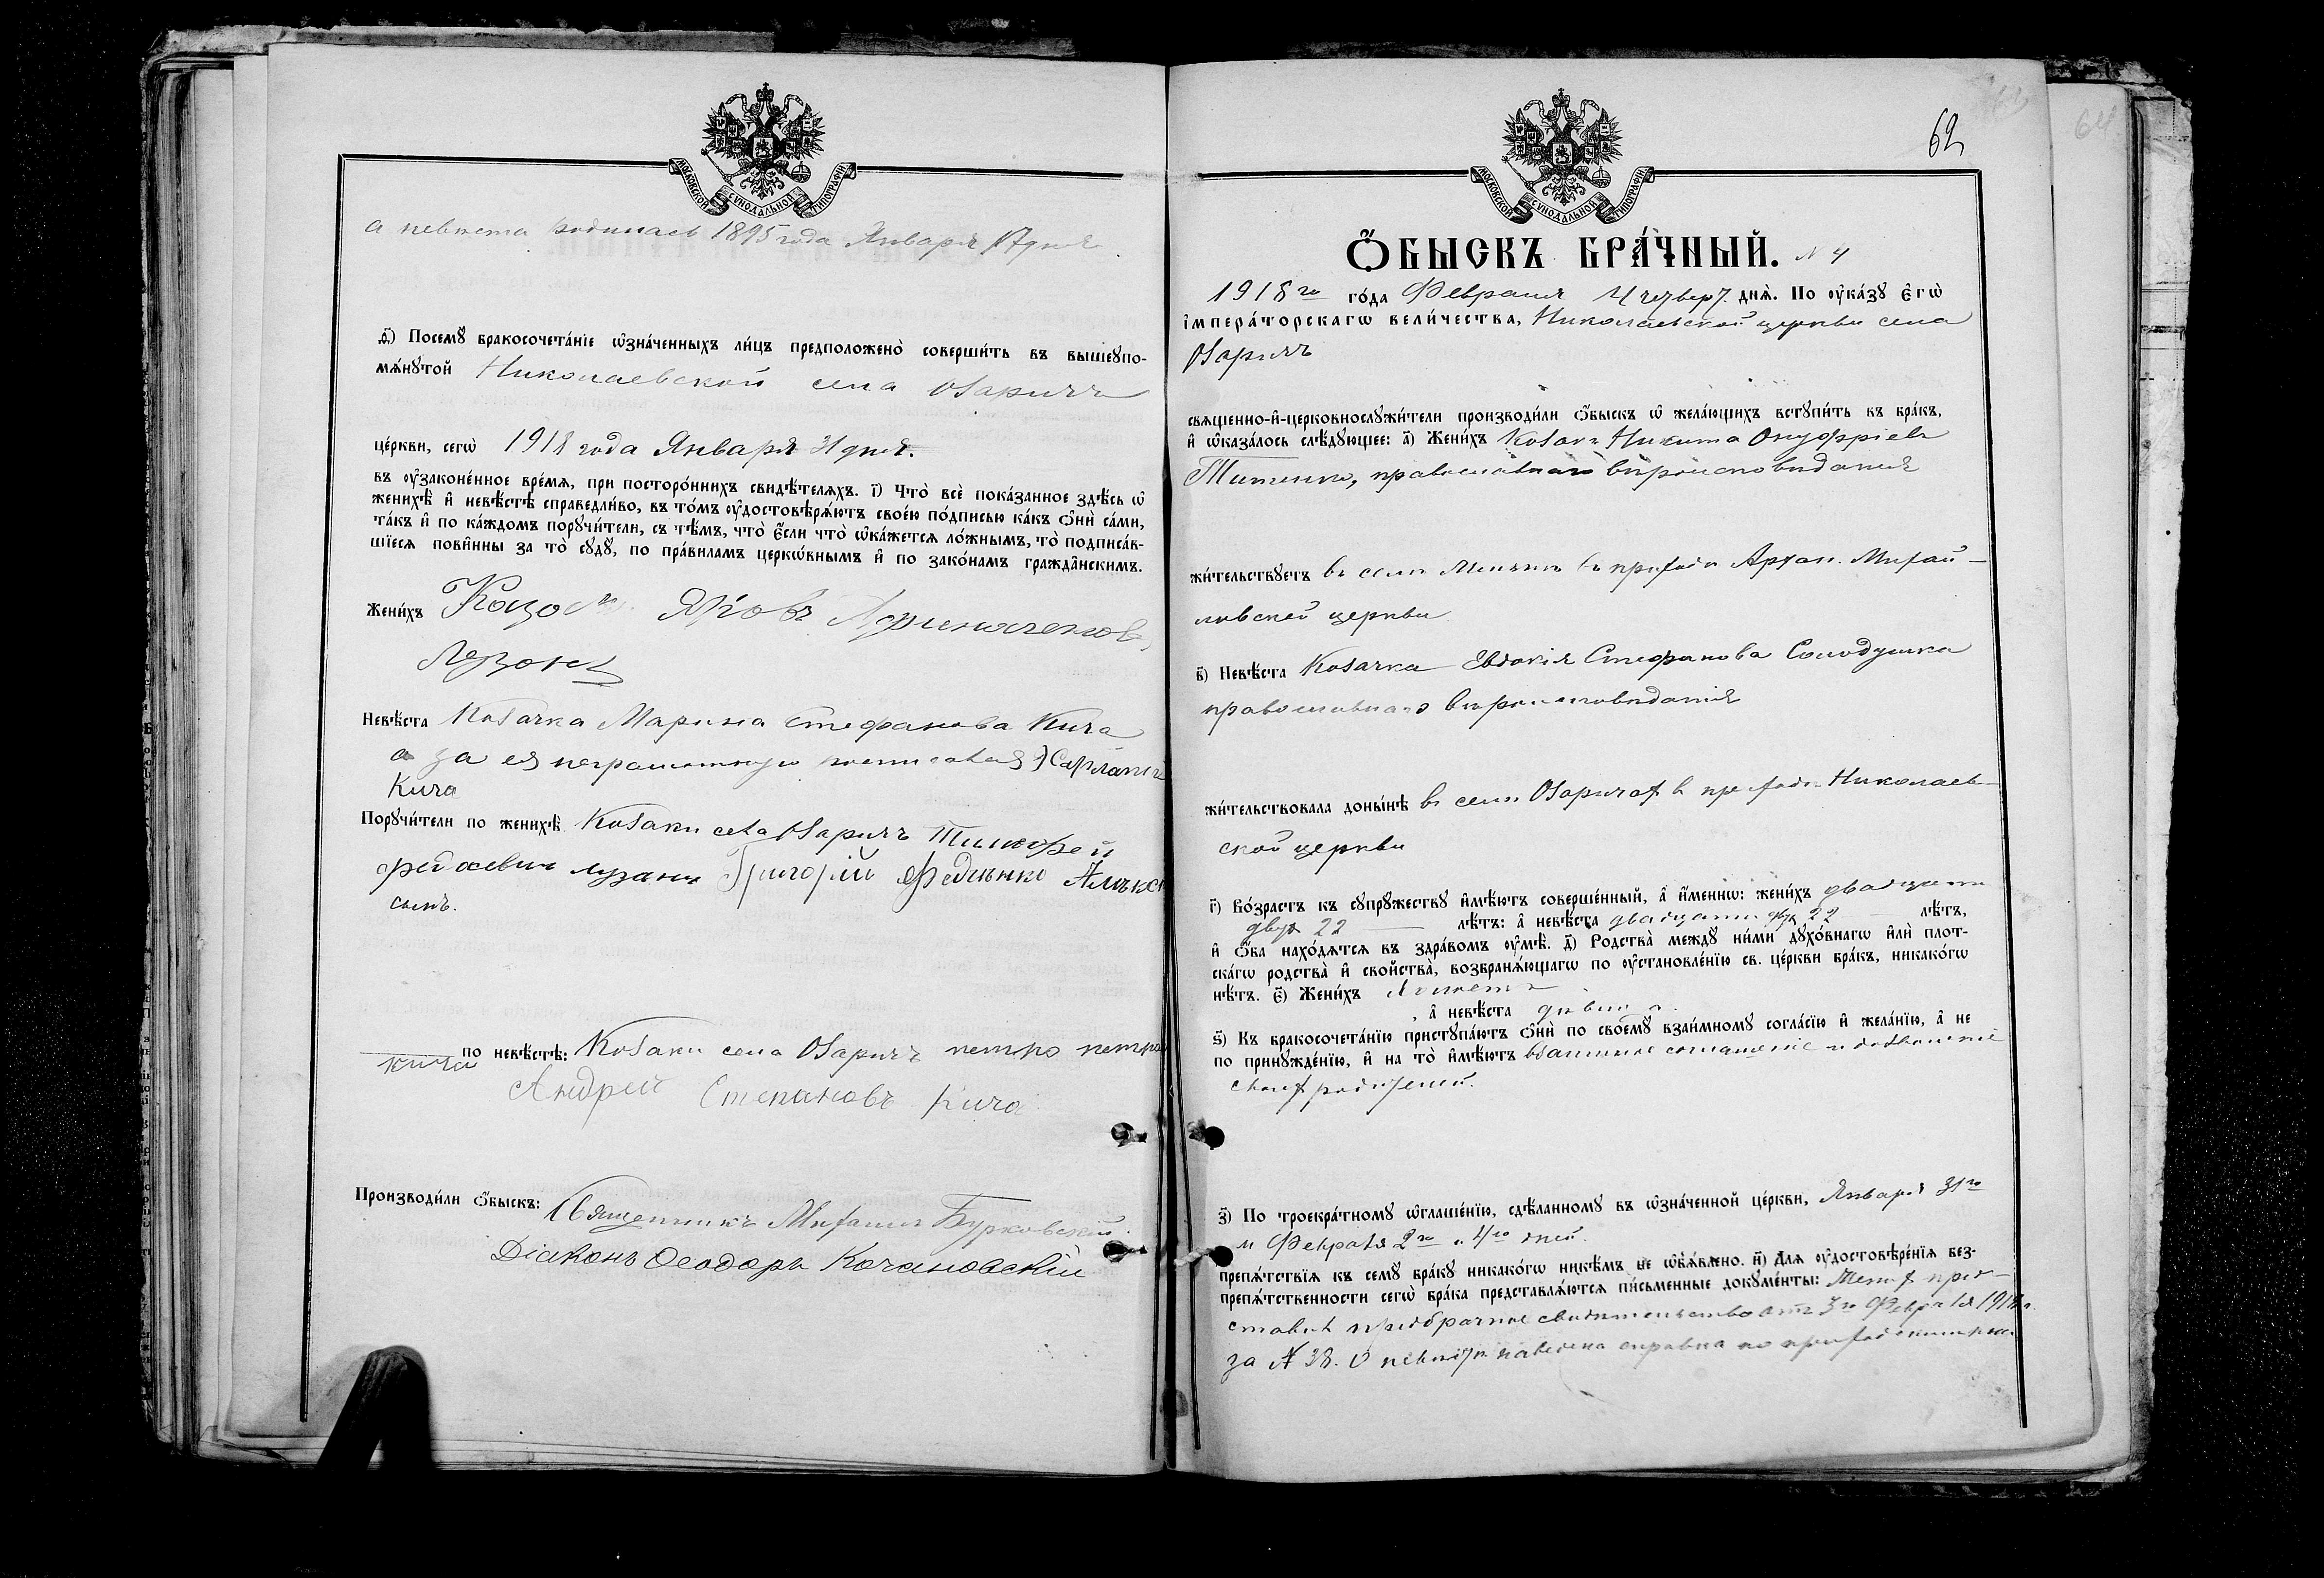 МОСКОВСКОЙ СѴНОДАЛЬНОЙ ТИПОГРАФІИ
а невѣста родилась 1895 года Января 17 дня.
д҃) Посемꙋ̀ бракосочета́нїе ѡ҆зна́ченныхъ ли́цъ предположено̀ соверши́ть въ вышеꙋпо-
мѧ́нꙋтой Николаевской села Озаричъ
це́ркви, сегѡ̀ 1918 года Января 31 дня.
въ ᲂу҆зако́ненное вре́мѧ, при посторо́ннихъ свидѣ́телѧхъ. і҃) Что̀ всѐ пока́занное здѣ́сь ѡ҆
женихѣ̀ и҆ невѣ́стѣ справедли́во, въ то́мъ ᲂу҆достовѣрѧ́ютъ свое́ю по́дписью ка́къ ѻ҆нѝ са́ми,
та́къ и҆ по ка́ждомъ порꙋчи́тели, съ тѣ́мъ, что̀ є҆́сли что̀ ѡ҆ка́жетсѧ ло́жнымъ, то̀ подписа́в-
шїесѧ пови́нны за то̀ сꙋдꙋ̀, по пра́виламъ церкѡ́внымъ и҆ по зако́намъ гражда̂нскимъ.
Жени́хъ Козакъ Яковъ
Лузанъ
Невѣ́ста Козачка Марина Стефанова Кича
а за ея неграмотную росписався Харлампій
Кича
Порꙋчи́тели по женихѣ̀ Козаки села Озаричъ Тимофей
лузанъ Григорій Феденко Алѣксѣ
сынъ.
по невѣ́стѣ: Козаки села Озаричъ петро петро
кича
Андрей Степановъ Кича
Производи́ли ѻ҆́быскъ: Священникъ Михаилъ Бурковскій.
Діаконъ Ѳеодоръ Кочановскій
62
64
МОСКОВСКОЙ СѴНОДАЛЬНОЙ ТИПОГРАФІИ
Ѻ҆́БЫСКЪ БРА́ЧНЫЙ. № 4
1918го го́да Февраля 4 четверт. днѧ̀. По ᲂу҆ка́зꙋ є҆гѡ̀
і҆мпера́торскагѡ вели́чества, Николаевской церкви села
Озаричъ
свѧще́нно-и҆-церковнослꙋжи́тели производи́ли ѻ҆́быскъ ѡ҆ жела́ющихъ встꙋпи́ть въ бра́къ,
и҆ ѡ҆каза́лось слѣ́дꙋющее: а҃) Жени́хъ Козакъ Никита Онуфріевъ
Титенко, православнаго вѣроисповѣданія
жи́тельствꙋетъ въ селѣ въ приходѣ Архан. Михай-
ловской церкви
в҃) Невѣ́ста Козачка Евдокія Стефанова Солодушка
православнаго вѣроисповѣданія
жи́тельствовала доны́нѣ въ селѣ Озаричах въ приходѣ Николаев-
ской церкви
г҃) Во́зрастъ къ сꙋпрꙋ́жествꙋ и҆мѣ́ютъ соверше́нный, а҆ и҆́меннѡ: жени́хъ двадцати
двух 22 лѣ́тъ: а҆ невѣ́ста двадцати двух 22 лѣ́тъ,
и҆ ѻ҆́ба нахо́дѧтсѧ въ здра́вомъ ᲂу҆мѣ̀. д҃) Родства̀ междꙋ̀ ни́ми дꙋхо́внагѡ и҆лѝ плот-
ска́гѡ родства̀ и҆ сво́йства̀, возбранѧ́ющагѡ по ᲂу҆становле́нїю св. це́ркви бра́къ, никако́гѡ
нѣ́тъ. є҃) Жени́хъ холостъ
, а҆ невѣ́ста дѣвица.
ѕ҃) Къ бракосочета́нїю пристꙋпа́ютъ ѻ҆нѝ по своемꙋ̀ взаи́мномꙋ согла́сїю и҆ жела́нїю, а҆ не
по принꙋжде́нїю, и҆ на то̀ и҆мѣ́ютъ взаимное соглашеніе и дозволеніе
своих родителей.
з҃) По троекра́тномꙋ ѡ҆глаше́нїю, сдѣ́ланномꙋ въ ѡ҆зна́ченной це́ркви, Января 31го
и Февраля 2го и 4го дней.
препѧ́тствїѧ къ семꙋ̀ бра́кꙋ никако́гѡ никѣ́мъ не ѡ҆б̾ѧ́влено. и҃) Длѧ ᲂу҆достовѣре́нїѧ без-
препѧ́тственности сегѡ̀ бра́ка представлѧ́ютсѧ пи́сьменные докꙋме́нты: Жених пред-
ставил предбрачное свидѣтельство отъ 3го Февраля 1918 г.
за № 38. О невѣстѣ наведена справка по приходским